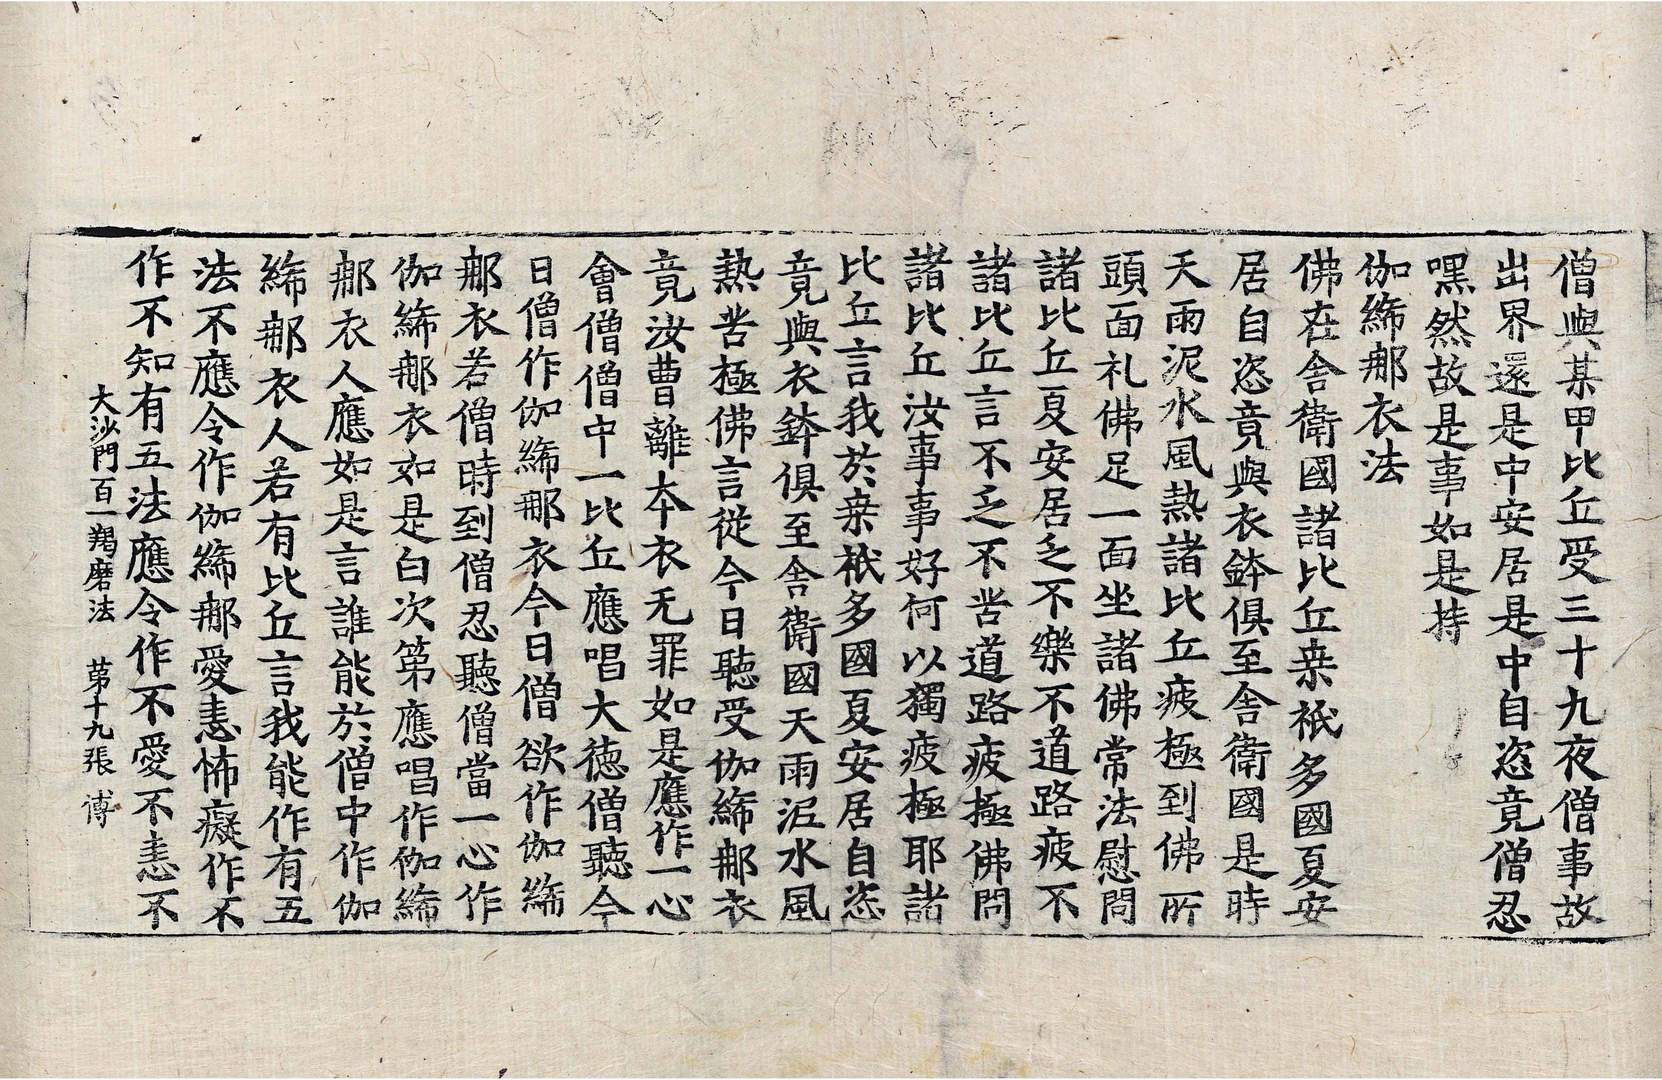 僧與某甲比丘受三十九夜僧事故
出界還是中安居是中自恣竟僧忍
嘿然故是事如是持
伽絺那衣法
佛在舍衛國諸比丘桒祇多國夏安
居自恣竟與衣鉢俱至舍衛國是時
天雨泥水風熱諸比丘疲極到佛所
頭面礼佛足一面坐諸佛常法慰問
諸比丘夏安居乏不樂不道路疲不
諸比丘言不乏不苦道路疲極佛問
諸比丘汝事事好何以獨疲極耶諸
比丘言我於桒祇多國夏安居自恣
竟與衣鉢俱至舍衛國天雨泥水風
熱苦極佛言從今日聽受伽絺那衣
竟汝曹離本衣无罪如是應作一心
會僧僧中一比丘應唱大德僧聽今
日僧作伽絺那衣今日僧欲作伽絺
那衣若僧時到僧忍聽僧當一心作
伽絺那衣如是白次第應唱作伽絺
那衣人應如是言誰能於僧中作伽
絺那衣人若有比丘言我能作有五
法不應令作伽絺那愛恚怖癡作不
作不知有五法應令作不愛不恚不
大沙門百一羯磨法 第十九張 傅